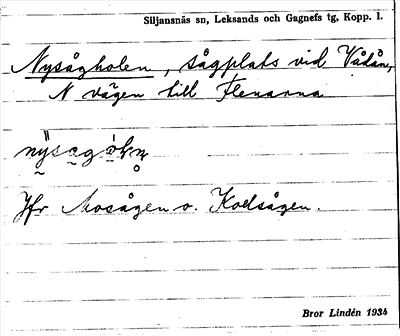 Siljansnäs sn, Leksands och Gagnefs tg, Kopp. l.
Nysågholen, sågplats vid Vådån,
N vägen till Flenarna
Jfr Mosågen o. Koelsågen.
Bror Lindén 1934